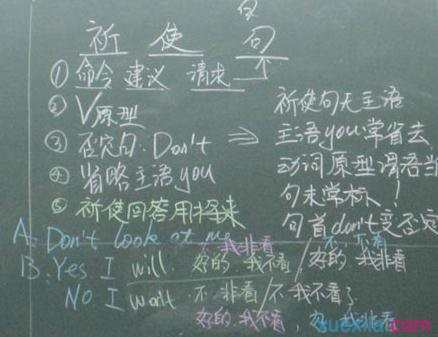 祈使句
① 命令 建议 请求
② V原型
③ 否定句. Don't ⇒
④ 省略主语you
⑤ 祈使回答用将来
祈使句无主语
主语you常省去
动词原型谓语当
句末常标！
句首don't变否定
A: Don't look at me
不 我非看
不, 不看
B: Yes I will. 好的 我不看 / 好的 我非看
NO I won't 不 非看 / 不 我不看了
好的 我不看, 不 我非看
xuexila.com